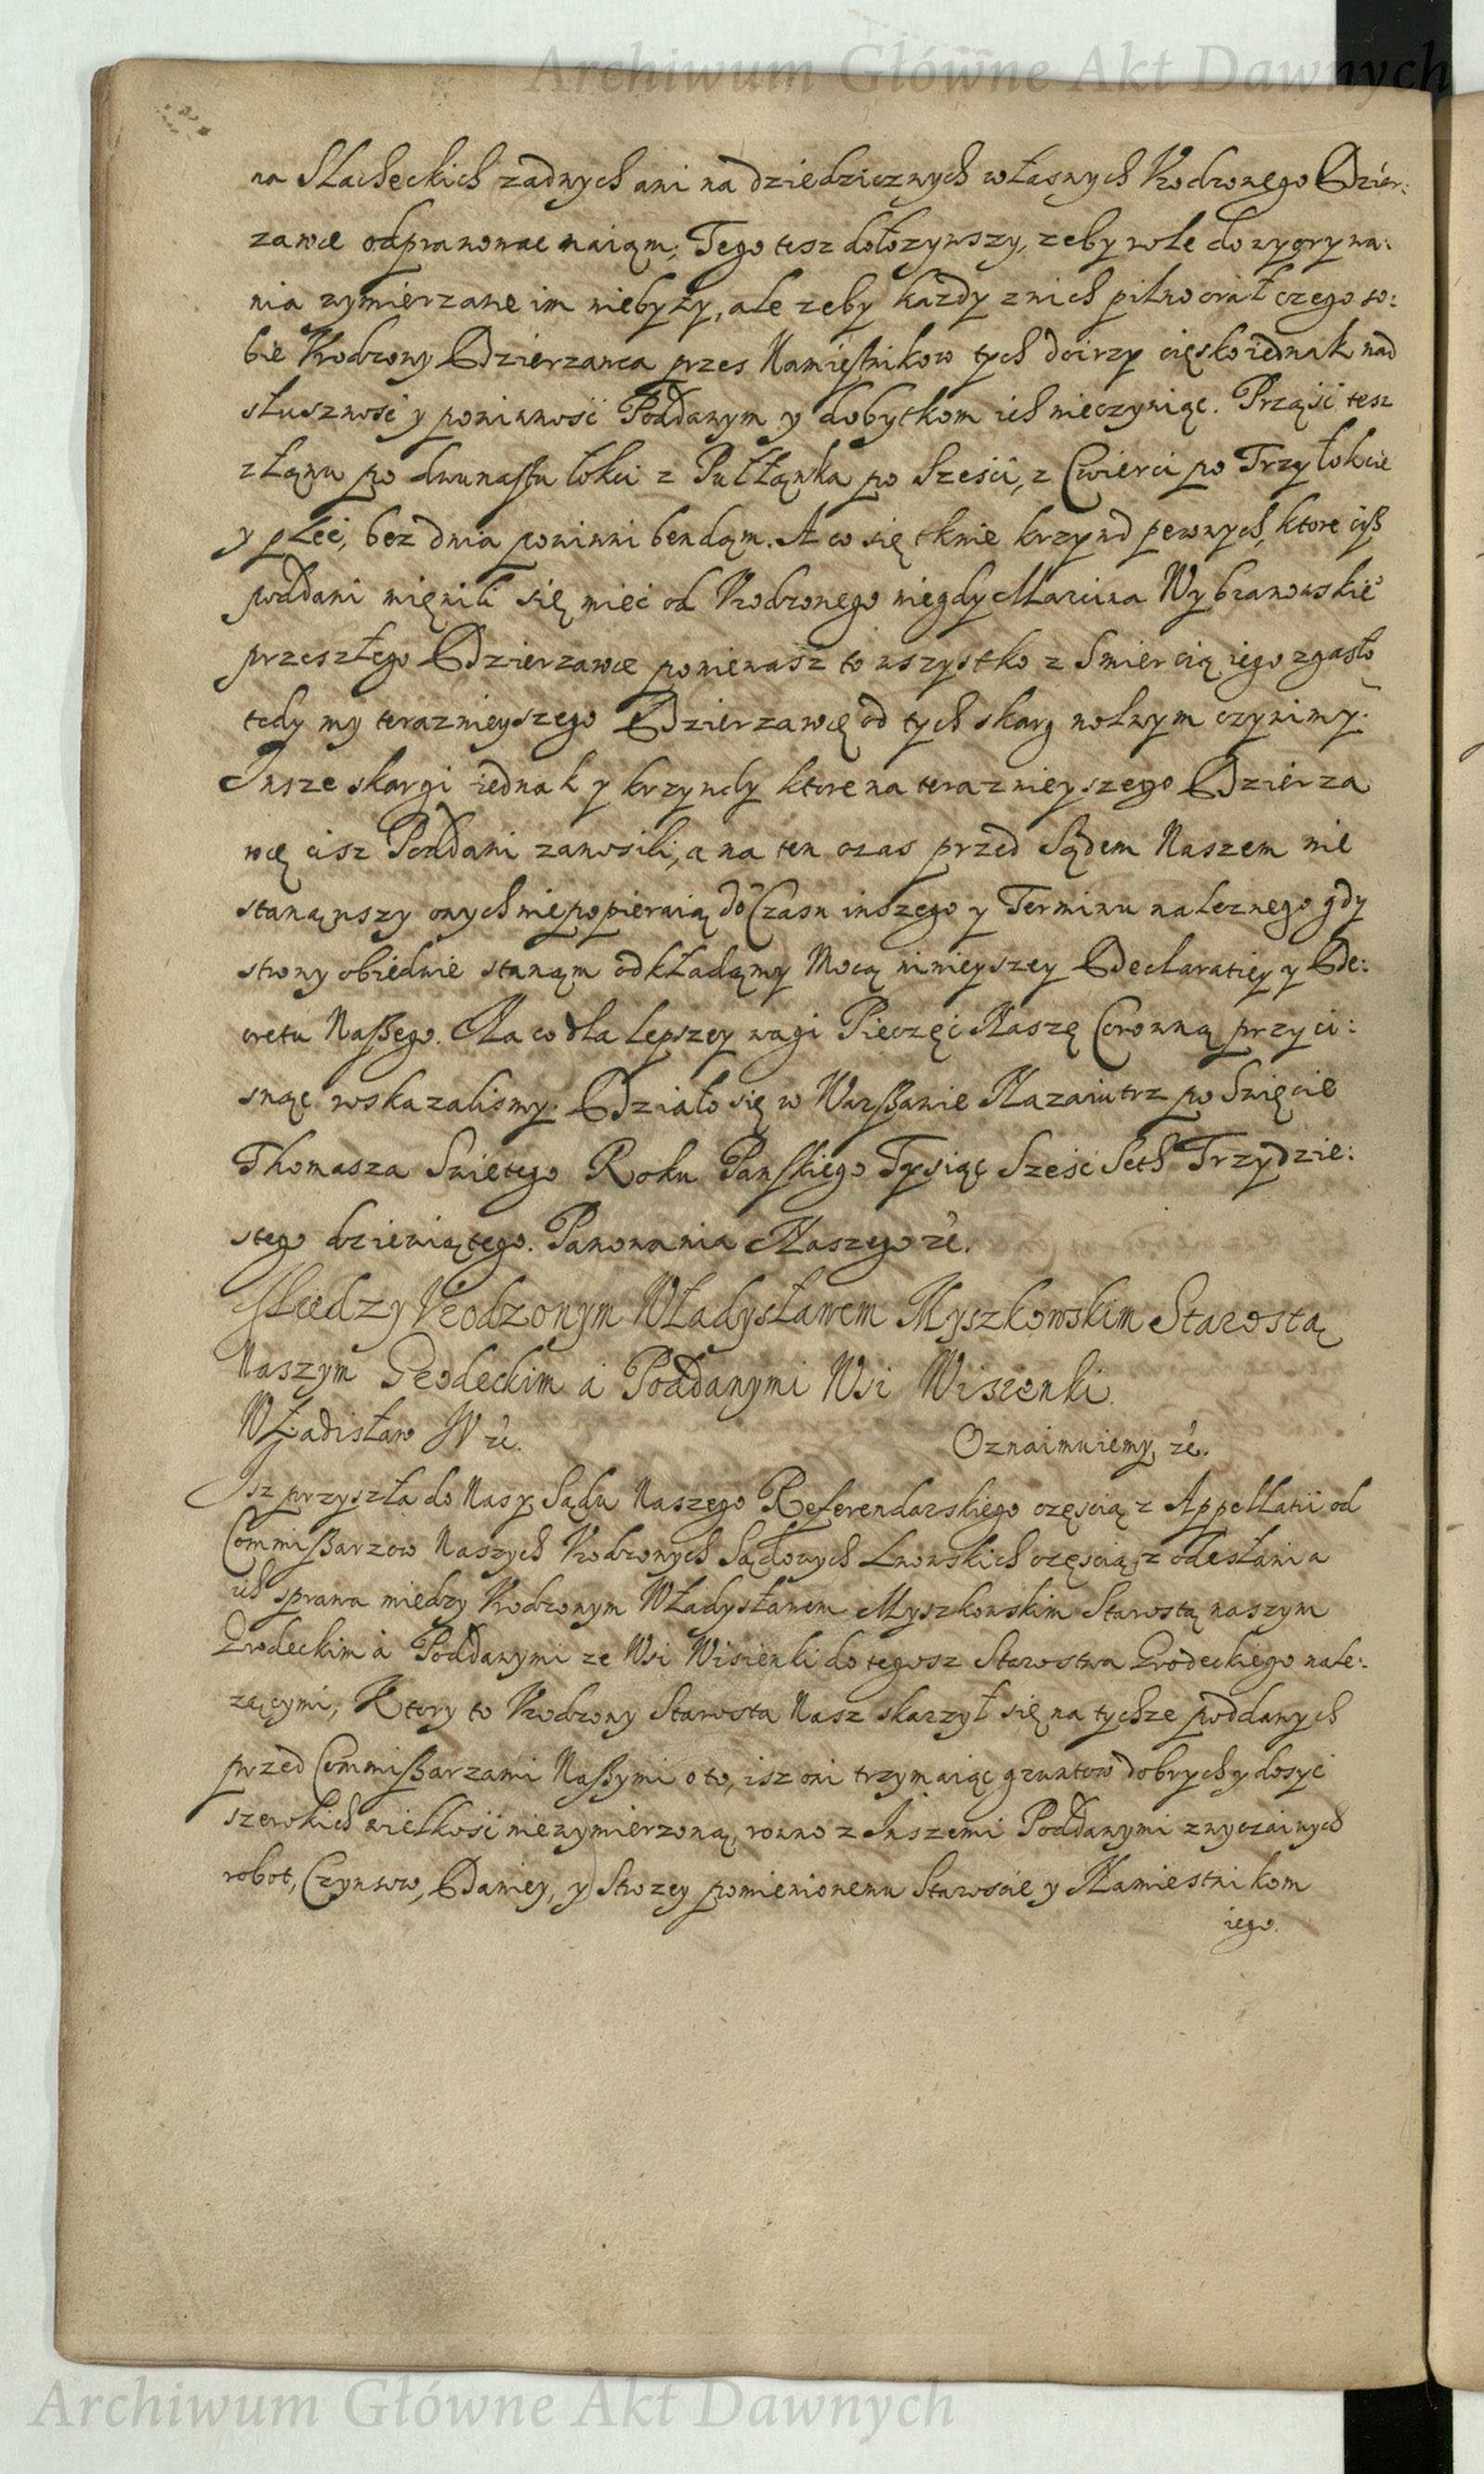 Archiwum Główne Akt Dawnych
na Slacheckich zadnych ani na dziedzicznych własnych Vrodzonego Dzier:
zawce odprawowac maiąm; Tego tesz dołozywszy, zeby role do zyoryna:
nia wymierzane im niebyły, ale zeby kazdy znich pilno orał czego so:
bie Vrodzony Dzierzawca przes Namięstnikow tych doirzy cięsko iednak nad
słusznosć y powinnosć Poddanym y dobytkom ich nieczyniąc. Prząsć tesz
z Łąnu po dwunastu łokci z Pułłąnka po Szesci, z Cwierci po Trzy łokcie
y pleć, bez dnia powinni bendąm. A co się tknie krzywd pewnych, ktore cysz
poddani mięnili się mieć od Vrodzonego niegdy Marcina Wybranowskie°
przeszłego Dzierzawce poniewasz to wszystko z Smiercią iego zgasło
tedy my teraznieyszego Dzierzawcę od tych skarg wolnym czynimy.
Insze skargi iednak y krzywdy ktore na teraznieyszego Dzierza
wcę cisz Poddani zanosili, a na ten czas przed Sądem Naszem nie
stanąwszy onych niepopieraią do Czasu inszego y Terminu naleznego gdy
strony obiedwie stanąm odkładąmy Mocą ninieyszey Declaratiey y De:
cretu Naßego. Na co dla lepszey wagi Pieczęć Naszę Coronną przyci:
snąć wskazalismy. Działo się w Warßawie Nazaiutrz po Swięcie
Thomasza Swietego Roku Panskiego Tysiąc Szesć Seth Trzydzie:
stego dziewiątego. Panowania Naszego &c.
Miedzy Vrodzonym Władysławem Myszkowskim Starostą
Naszym Grodeckim a Poddanymi Wsi Wisienki.
Władisław IV &c.
Oznaimuiemy, &c.
Isz przyszła do Nas y Sądu Naszego Referendarskiego częscią z Appellatii od
Commißarzow Naszych Vrodzonych Sądowych Lwowskich częscią z odesłania
ich sprawa miedzy Vrodzonym Władysławem Myszkowskim Starostą naszym
Grodeckim à Poddanymi ze Wsi Wisienki do tegosz Starostwa Grodeckiego nale:
zącymi, Ktory to Vrodzony Starosta Nasz skarzył się na tychze poddanych
przed Commißarzami Naßymi o to, isz oni trzymaiąc gruntow dobrych y dosyć
szerokich wielkosć niewymierzoną, rowno z Inszemi Poddanymi zwyczainych
robot, Czynszow, Daniey, y Strozey pomienionemu Staroscie y Namiestnikom
iego.
Archiwum Główne Akt Dawnych